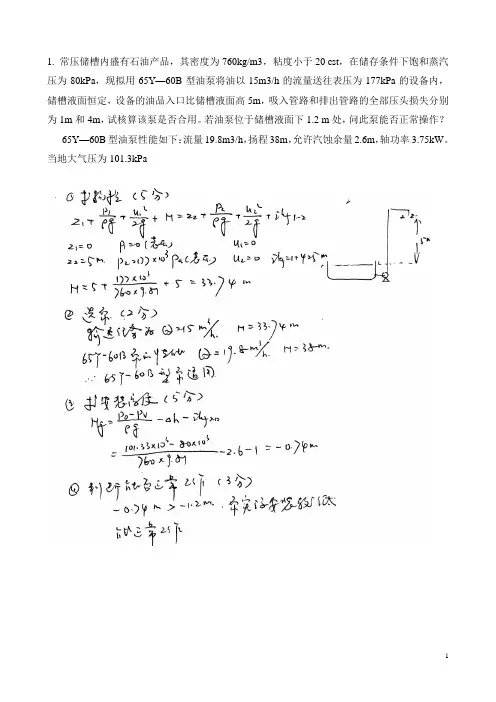 1. 常压储槽内盛有石油产品，其密度为760kg/m3，粘度小于20 cst，在储存条件下饱和蒸汽
压为80kPa，现拟用65Y—60B型油泵将油以15m3/h的流量送往表压为177kPa的设备内，
储槽液面恒定，设备的油品入口比储槽液面高5m，吸入管路和排出管路的全部压头损失分别
为1m和4m，试核算该泵是否合用。若油泵位于储槽液面下1.2 m处，问此泵能否正常操作？
65Y—60B型油泵性能如下：流量19.8m3/h，扬程38m，允许汽蚀余量2.6m，轴功率3.75kW。
当地大气压为101.3kPa
① 求扬程（5分）
Z1+P1/ρg+u1²/2g+H=Z2+P2/ρg+u2²/2g+Σhf1-2
Z1=0 P1=0(表压) u1=0
Z2=5m P2=177×10³Pa(表压) u2=0 Σhf=1+4=5m
H=5+177×10³/760×9.81+5=33.74m
② 选泵（2分）
输送任务为 Q=15m³/h. H=33.74m
65Y-60B泵的 Q=19.8m³/h. H=38m.
∴ 65Y-60B型泵适用
③ 求安装高度（5分）
Hg=P0-PV/ρg-Δh-Σhf
=101.33×10³-80×10³/760×9.81-2.6-1=-0.74m
④ 判断能否正常工作（3分）
-0.74m>-1.2m. 泵实际安装较低
能正常工作
2
5m
1